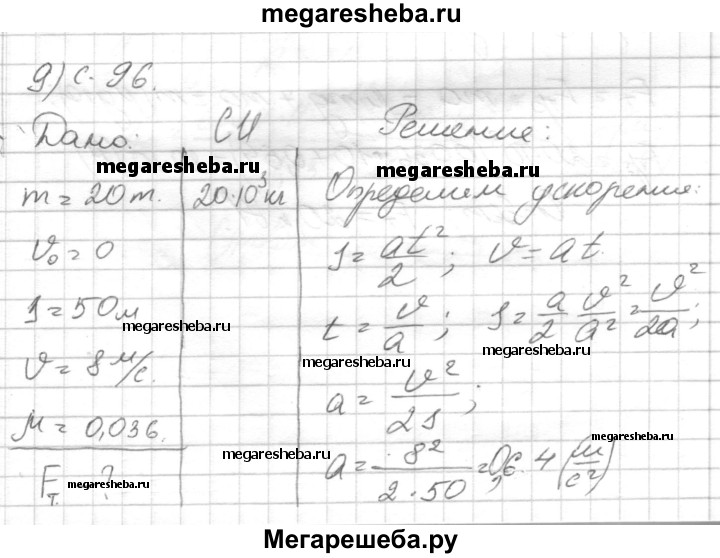 megaresheba.ru
9) с. 96.
Дано: СИ Решение:
megaresheba.ru megaresheba.ru
m = 20 т. 20·10³ кг Определим ускорение:
v₀ = 0 s = at²/2; v = at.
s = 50 м t = v/a; s = a/2 v²/a² = v²/2a;
megaresheba.ru megaresheba.ru megaresheba.ru
v = 8 м/с. a = v²/2s;
μ = 0,036. a = 8²/2·50 = 0,64 (м/с²)
megaresheba.ru megaresheba.ru
Fт. ?
megaresheba.ru
Мегарешеба.ру